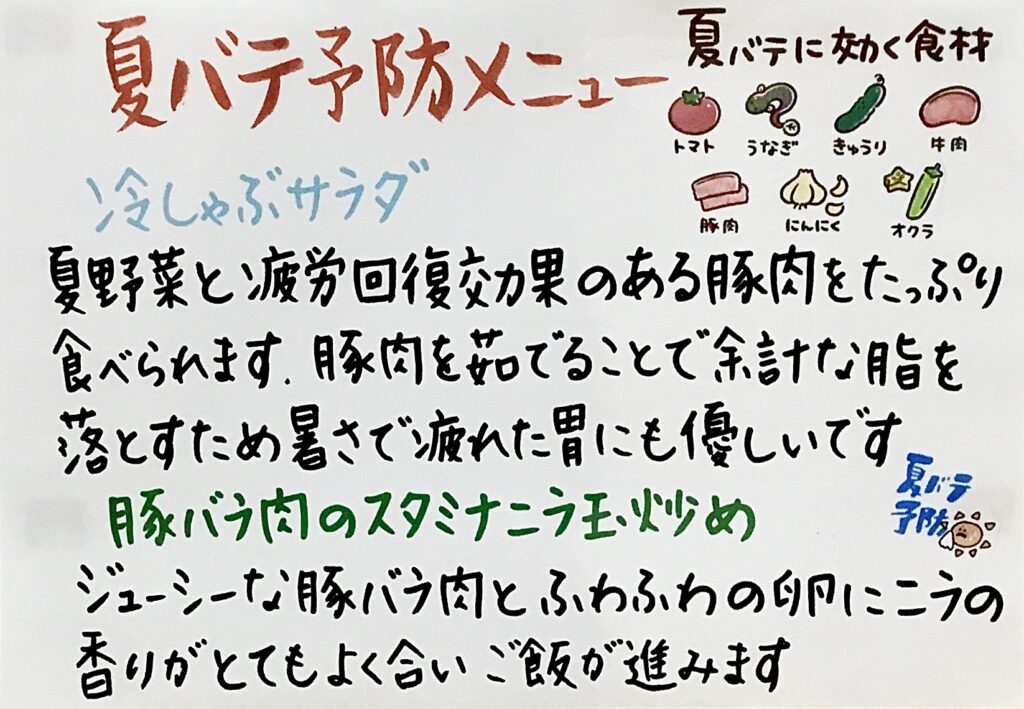 夏バテ予防メニュー
夏バテに効く食材
トマト
うなぎ
きゅうり
牛肉
豚肉
にんにく
オクラ
冷しゃぶサラダ
夏野菜と疲労回復効果のある豚肉をたっぷり
食べられます.豚肉を茹でることで余計な脂を
落とすため暑さで疲れた胃にも優しいです
夏バテ
予防
豚バラ肉のスタミナニラ玉炒め
ジューシーな豚バラ肉とふわふわの卵にニラの
香りがとてもよく合いご飯が進みます